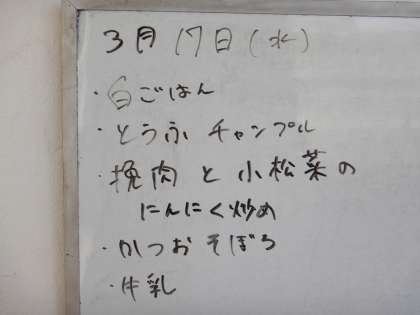 3月17日(水)
・白ごはん
・とうふチャンプル
・挽肉と小松菜の
にんにく炒め
・かつおそぼろ
・牛乳